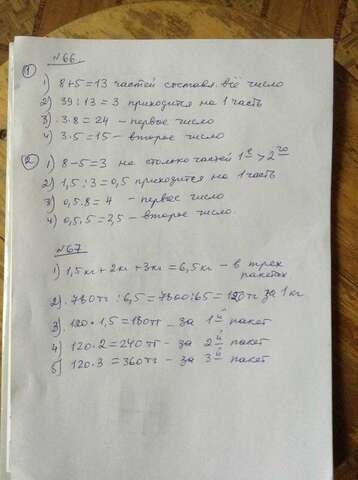 №66
① 1) 8+5=13 частей составл. всё число
2) 39:13=3 приходится на 1 часть
3) 3·8=24 - первое число
4) 3·5=15 - второе число
② 1) 8-5=3 на столько частей 1е > 2го
2) 1,5:3=0,5 приходится на 1 часть
3) 0,5·8=4 - первое число
4) 0,5·5=2,5 - второе число.
№67
1) 1,5кг + 2кг + 3кг = 6,5кг - в трех
пакетах
2) 780тг : 6,5 = 7800:65 = 120тг за 1 кг
3) 120·1,5=180тг - за 1й пакет
4) 120·2=240тг - за 2й пакет
5) 120·3=360тг - за 3й пакет